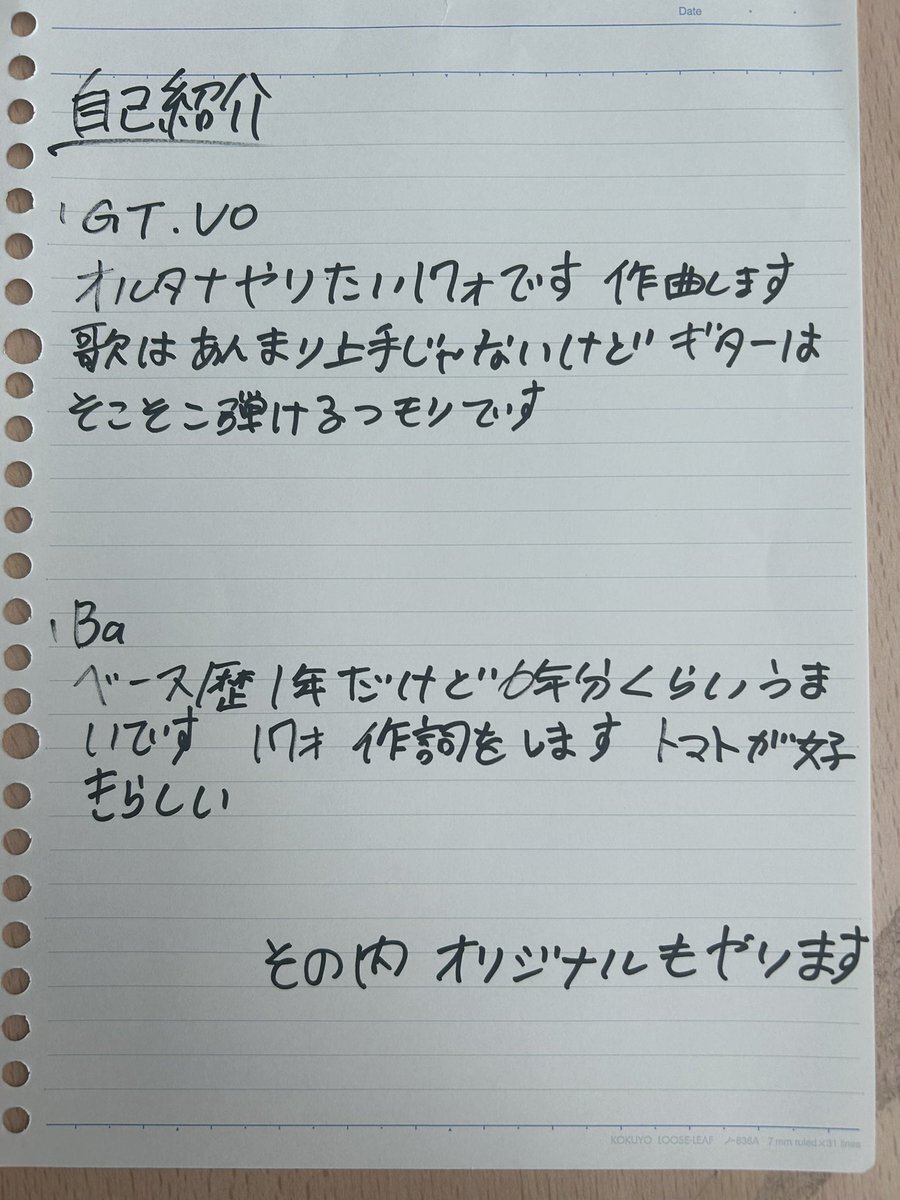 Date
自己紹介
' GT.VO
オルタナやりたい17才です 作曲します
歌はあんまり上手じゃないけど ギターは
そこそこ弾けるつモリです
' Ba
ベース歴1年だけど6年分くらいうま
いです 17才 作詞をします トマトが好
きらしい
その内 オリジナルもやります
KOKUYO LOOSE-LEAF ノ-836A 7 mm ruled×31 lines